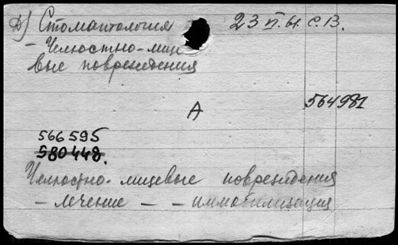 Д) Стоматология 23 VI. 61. с. 13.
- Челюстно-лицевые повреждения
А
564981
566595
580448.
Челюстно-лицевые повреждения
- лечение - - иммобилизация